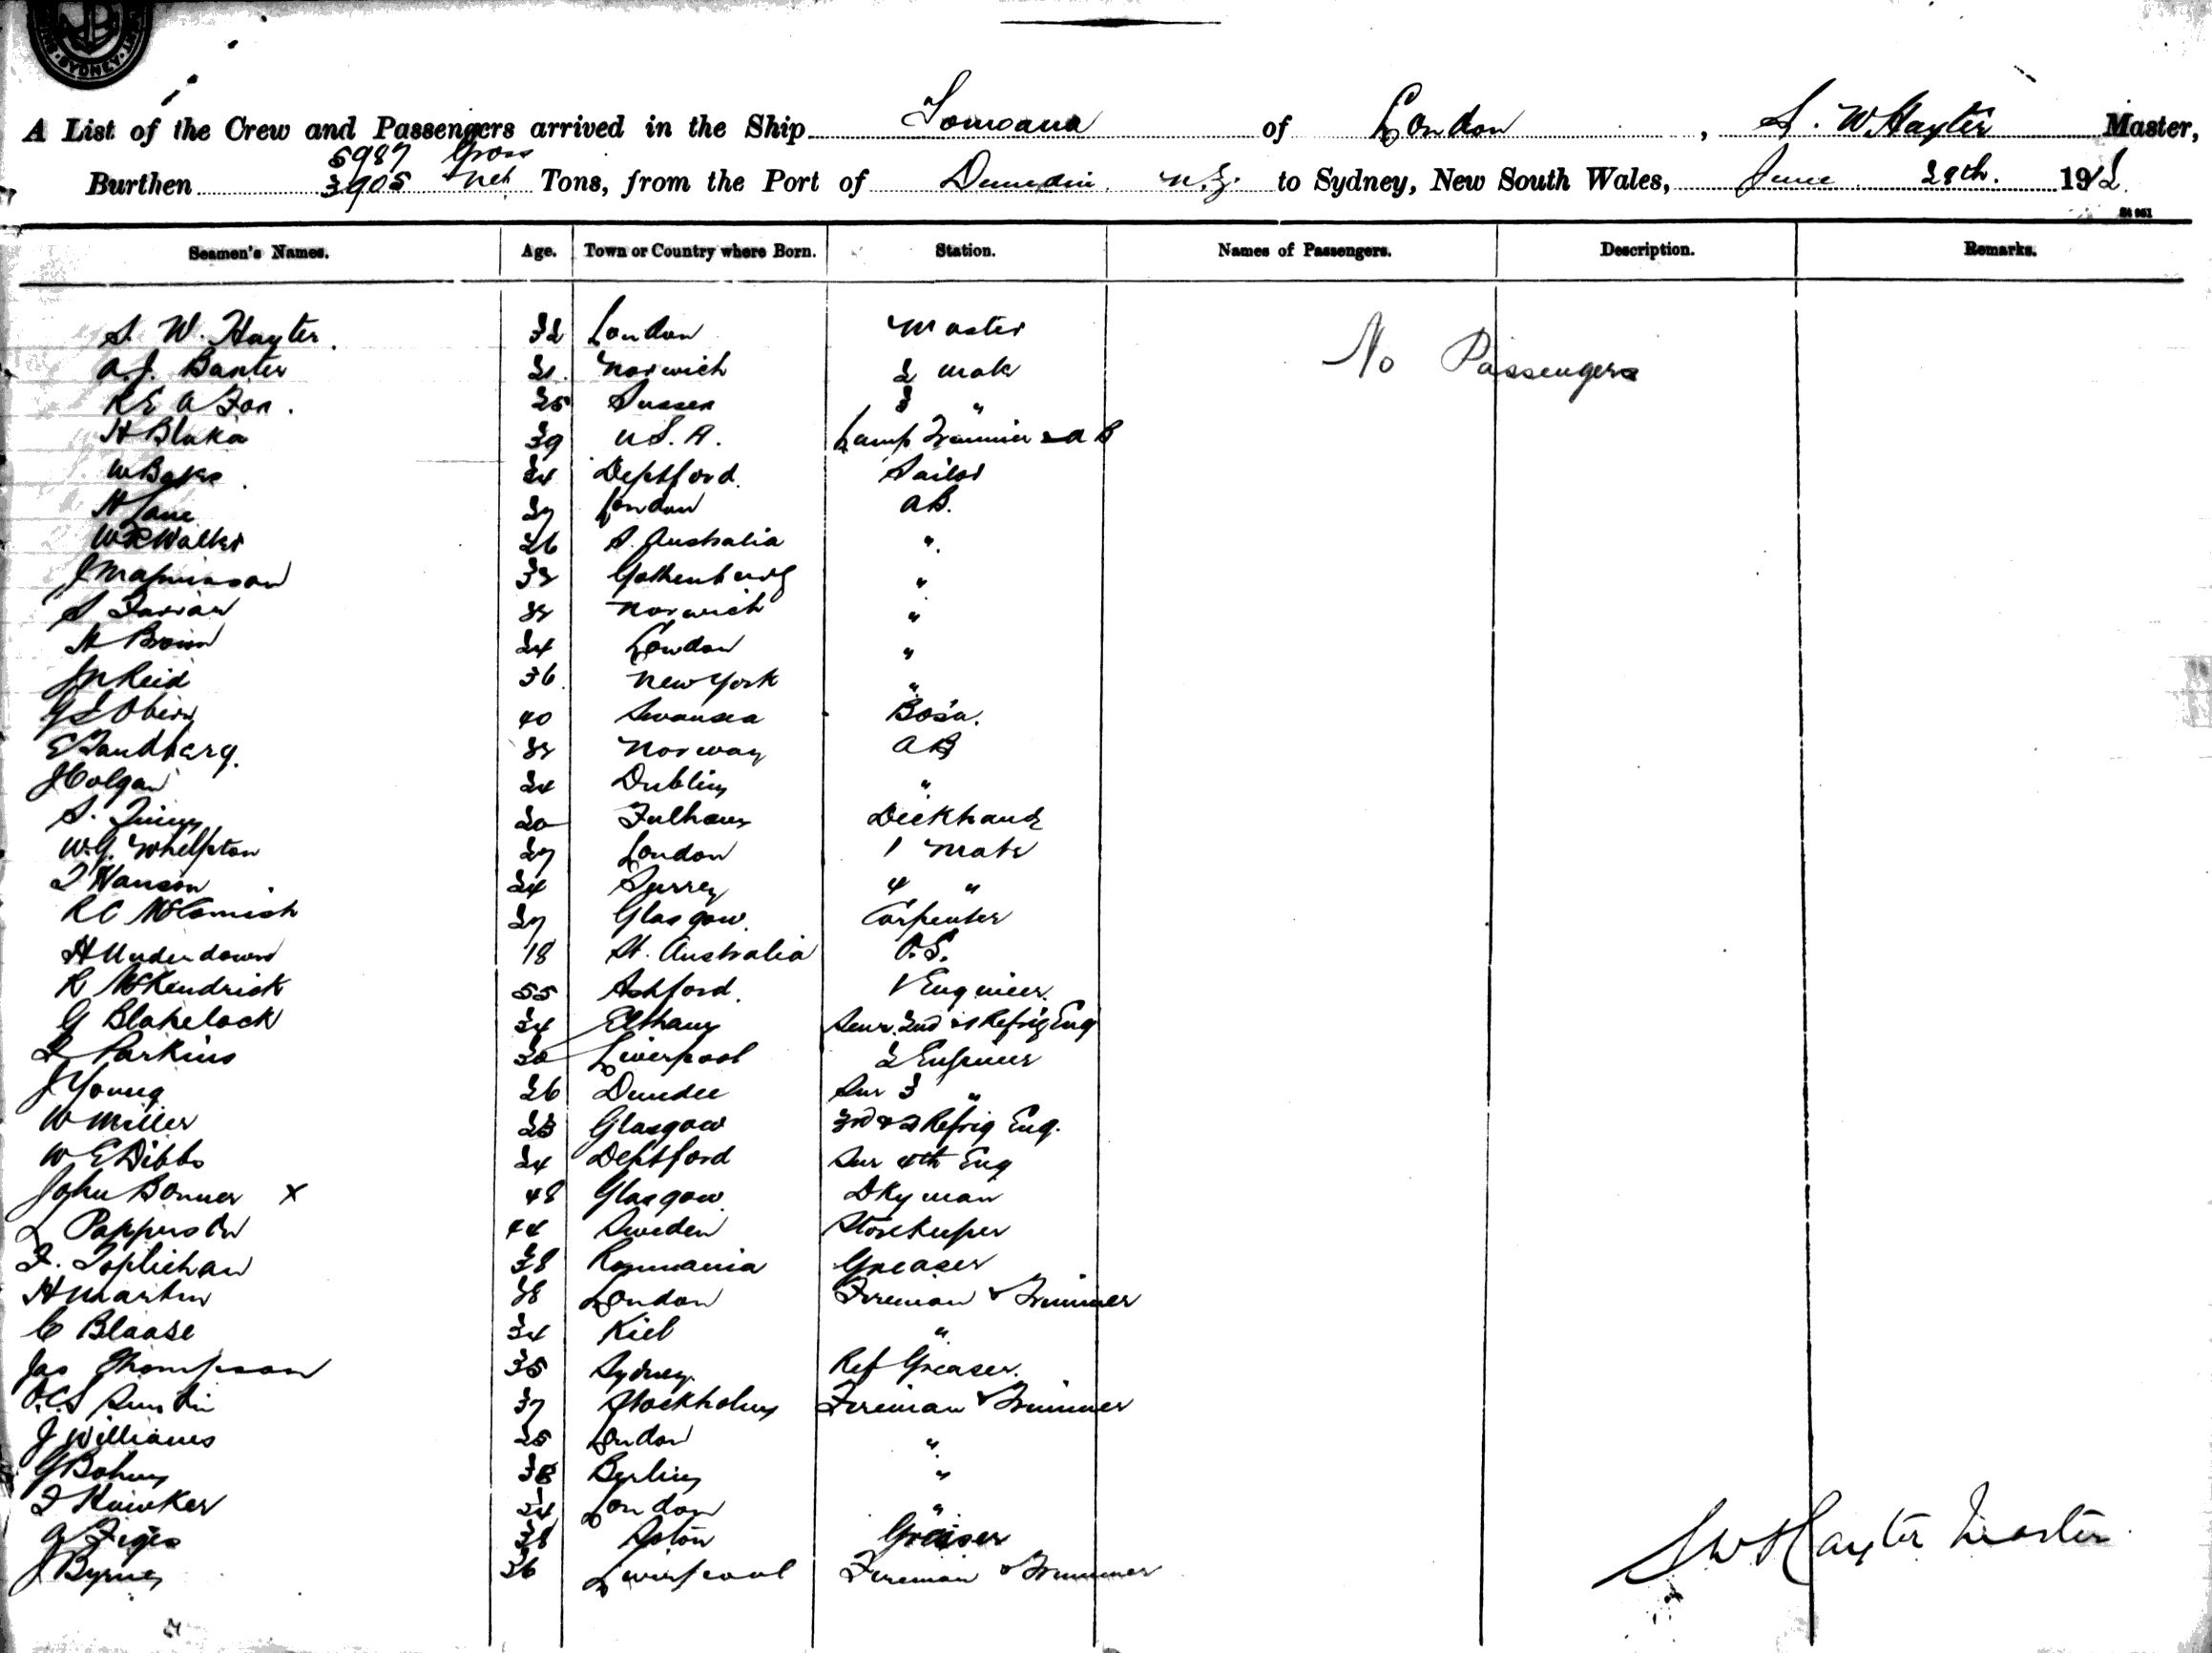 SYDNEY
A List of the Crew and Passengers arrived in the Ship Tomoana of London, S. W. Hayter Master,
5987 Gross
Burthen 3905 net Tons, from the Port of Dunedin N.Z. to Sydney, New South Wales, June 28th. 1912
Seamen's Names. Age. Town or Country where Born. Station. Names of Passengers. Description. Remarks.
S. W. Hayter. 32 London Master
No Passengers
A. J. Baxter Norwich 2 mate
R E A Fox. 25 Sussex 3 "
H Blaka 39 U.S.A. Lamp Trimmer & A B
W 24 Deptford. Sailor
H Lane 27 London AB.
W R Walker 26 S. Australia "
J Magnusson Gothenburg "
S Farrar Norwich "
H Brown 24 London "
J N Reid 36 New York "
40 Swansea Bosn.
E Sandberg. Norway AB
J Colgan 24 Dublin "
S. 20 Fulham Deckhand
W. G. Whelpton 27 London 1 Mate
Hanson 24 Surrey 4 "
R C McComish 27 Glasgow. Carpenter
H Underdown 18 St. Australia O.S.
R McKendrick 55 Ashford. 1 Engineer.
G Blakelock 34 Eltham Senr. 2nd & 1 Refrig Eng
Parkins 30 Liverpool 2 Engineer
J Young 26 Dundee Jur 3 "
W Miller 23 Glasgow 3rd & 2 Refrig Eng.
W E Dibbs 24 Deptford Jur 4th Eng
John Bonner x 48 Glasgow. Dkyman
44 Sweden Storekeeper
F. Toplichan 38 Roumania Greaser
H Martin 38 London Fireman & Trimmer
C Blaase 34 Kiel "
Jas Thompson 35 Sydney. Ref Greaser.
37 Stockholm Fireman & Trimmer
J Williams 25 London "
G Bohm 38 Berlin "
24 London "
A Figes 38 Aston Greaser
J Byrne 36 Liverpool Fireman & Trimmer
S W Hayter Master